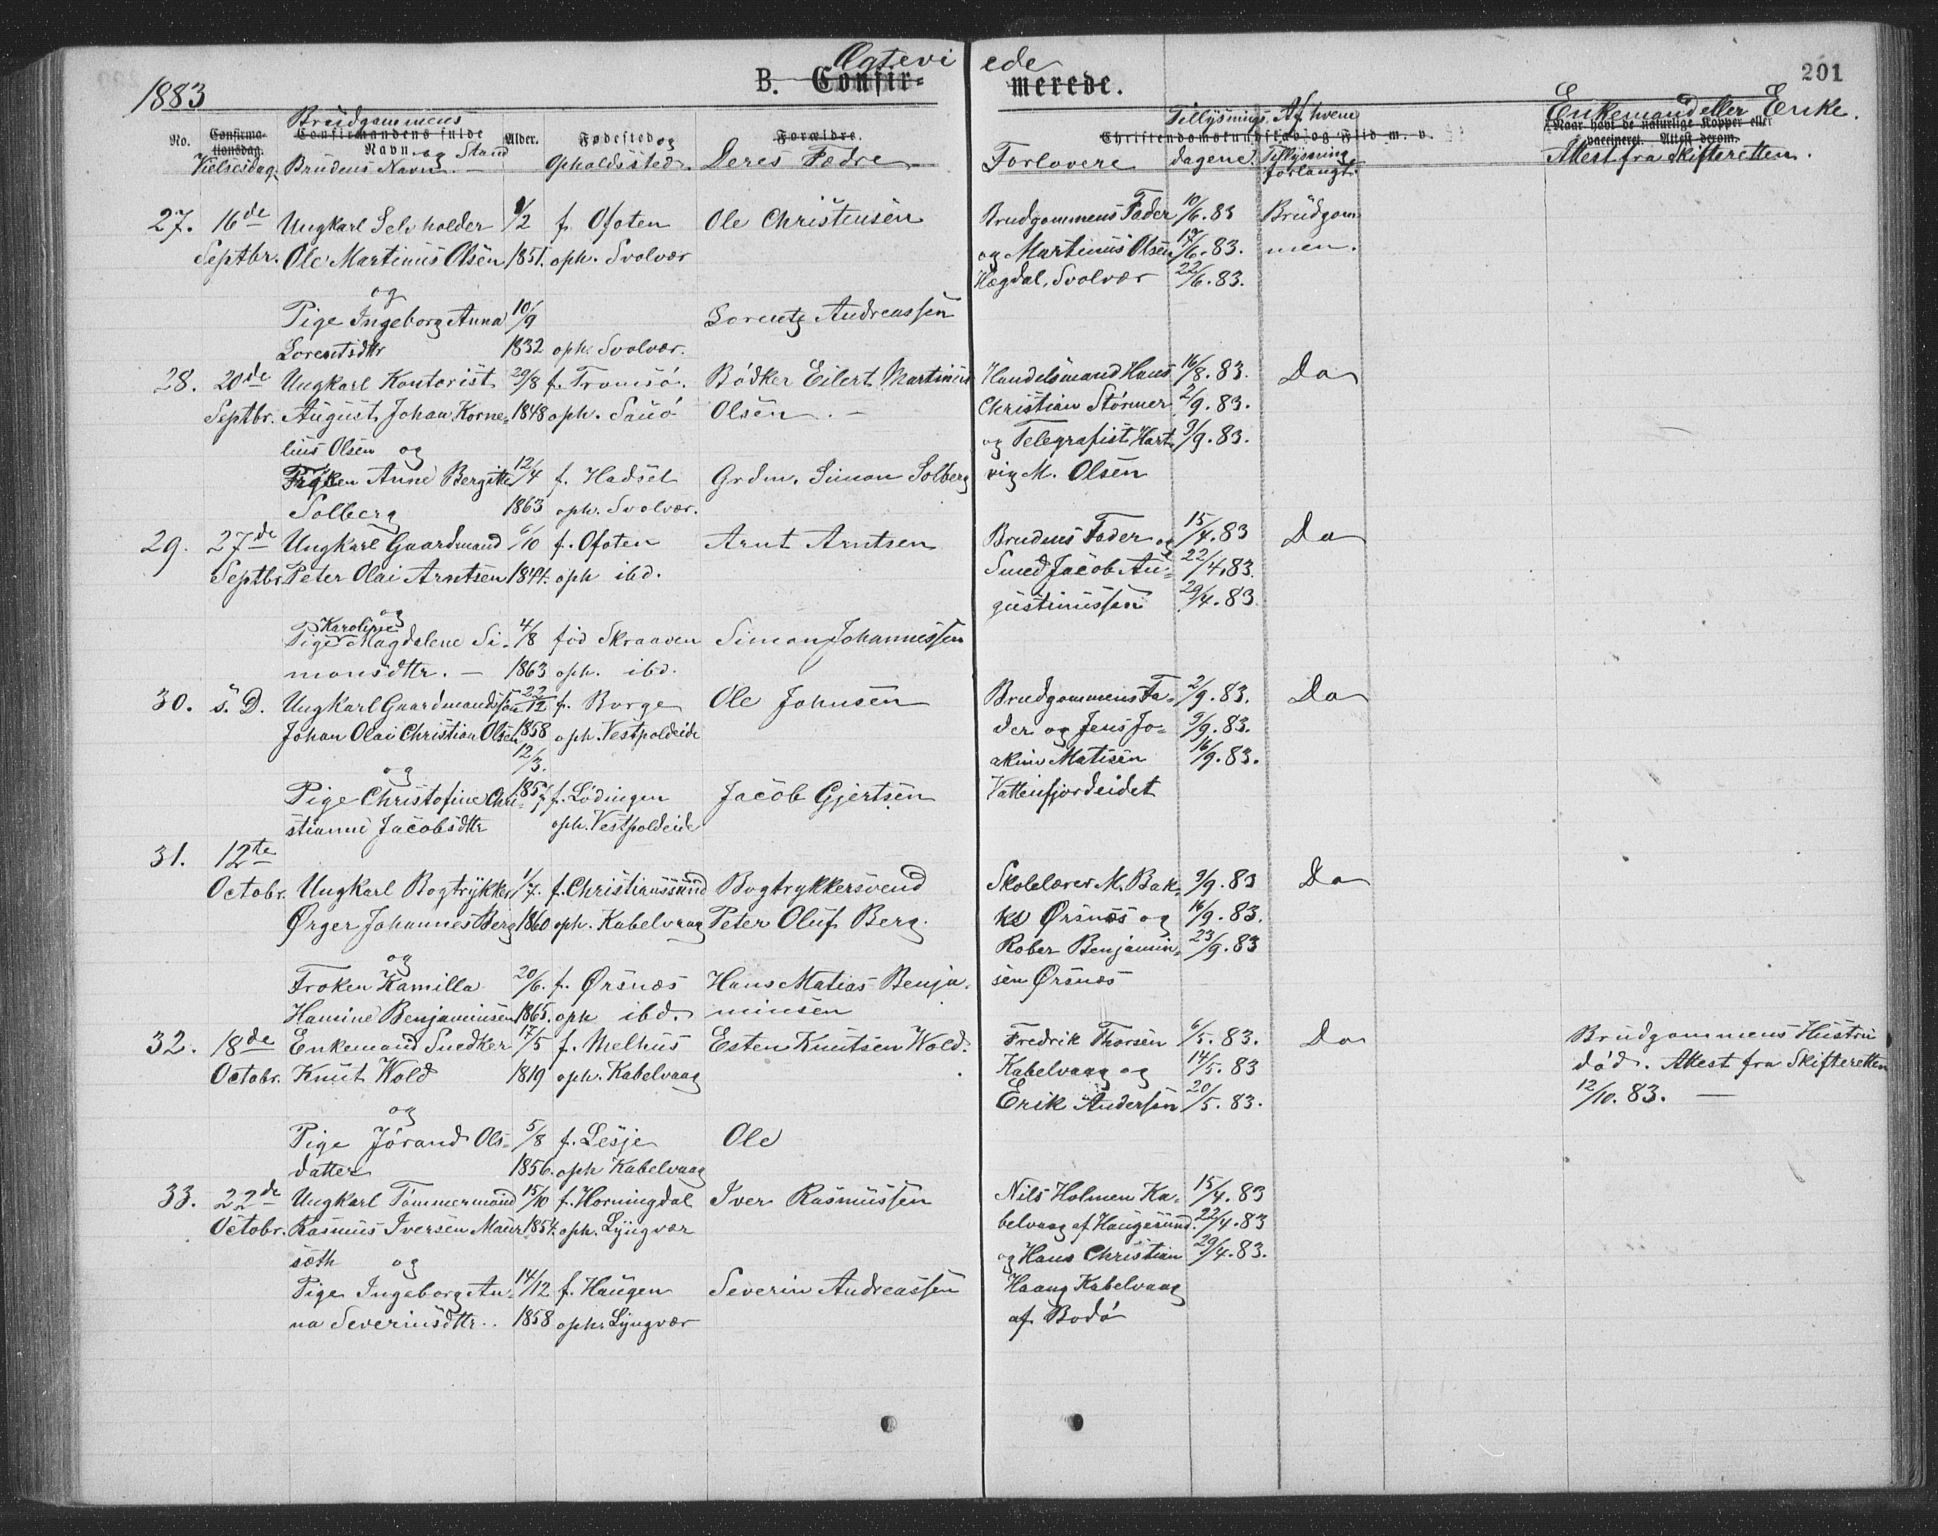 1883
Ægteviede
B. Confirmerede.
201
No.
Confirmationsdag.
Vielsesdag.
Brudgommens
Confirmandens fulde Navn og Stand
Brudens Navn. —
Alder.
Fødested og
Opholdssted.
Forældre.
Deres Fædre
Forlovere
Christendomskundskab og Flid m. v.
Tillysnings-
dagene.
Af hvem
Tillysning
forlangt.
Enkemand eller Enke.
Naar havt de naturlige Kopper eller
vaccineret. Attest derom.
Attest fra Skifteretten.
27. 16de Ungkarl Selvholder 1/2 f. Ofoten Ole Christensen Brudgommens Fader 10/6. 83 Brudgom
Septbr. Ole Martinus Olsen 1851. oph. Svolvær og Martinus Olsen 17/6. 83. men.
Hægdal, Svolvær 22/6. 83.
og
Pige Ingeborg Anna 10/9 Lorentz Andreassen
Lorentsdtr 1832 oph. Svolvær.
28. 20de Ungkarl Kontorist 29/8 f. Tromsö. Bödker Eilert Martinus Handelsmand Hans 16/8. 83. Do
Septbr. August Johan Korne- 1848 oph. Sauö Olsen. — Christian Störmer 2/9. 83.
lius Olsen og og Telegrafist Hart- 9/9. 83.
Fröken Anne Bergitte 12/4 f. Hadsel Grdm. Simon Solberg vig M. Olsen
Solberg 1863 oph. Svolvær.
29. 27de Ungkarl Gaardmand 6/10 f. Ofoten Arnt Arntsen Brudens Fader og 15/4. 83 Do
Septbr Peter Olai Arntsen 1844. oph ibd. Smed Jacob Au- 22/4. 83.
gustinussen 29/4. 83.
og
Karoline
Pige Magdalene Si- 4/8 fød Skraaven Simon Johannessen
monsdtr. — 1863 oph. ibd.
30. s. D. Ungkarl Gaardmandssön 22/12 f. Borge Ole Johnsen Brudgommens Fa- 2/9. 83. Do
Johan Olai Christian Olsen 1858 oph. Vestpoldeide der og Jens Jo- 9/9. 83.
og 12/3. akim Matisen 16/9. 83.
Pige Christofine Chri- 1857 f. Lödingen Jacob Gjertsen Vatterfjordeidet
stianne Jacobsdtr oph. Vestpoldeide
31. 12te
Octobr. Ungkarl Bogtrykker 1/7. f. Christianssund Bogtrykkersvend Skolelærer M. Bak- 9/9. 83 Do
Ørger Johannes Berg 1860 oph. Kabelvaag Peter Oluf Berg. ke Ørsnes og 16/9. 83.
og Rober Benjamin- 23/9. 83
Froken Kamilla 20/6. f. Ørsnæs Hans Matias Benja- sen Ørsnæs
Hamine Benjaminsen 1865. oph ibd. minsen
32. 18de Enkemand Snedker 17/5 f. Melhus Esten Knutsen Wold. Fredrik Thorsen 6/5. 83. Do Brudgommens Hustru
Octobr. Knut Wold 1819 oph. Kabelvaag Kabelvaag og 14/5. 83 död. Attest fra Skifteretten
Erik Andersen 20/5. 83. 12/10. 83. —
og
Pige Jörand Ols- 5/8 f. Lesje Ole
datter 1856. oph Kabelvaag
33. 22de Ungkarl Tömmermand 15/10 f. Horningdal Iver Rasmussen Nils Holmen Ka- 15/4. 83
Octobr. Rasmus Iversen Maur- 1854. oph. Lyngvær belvaag af Haugesund. 22/4. 83
sæth og og Hans Christian 29/4. 83.
Pige Ingeborg An- 14/12 f. Haugen Severin Andreassen Haaug Kabelvaag
na Severinsdtr. 1858 oph: Lyngvær af Bodö